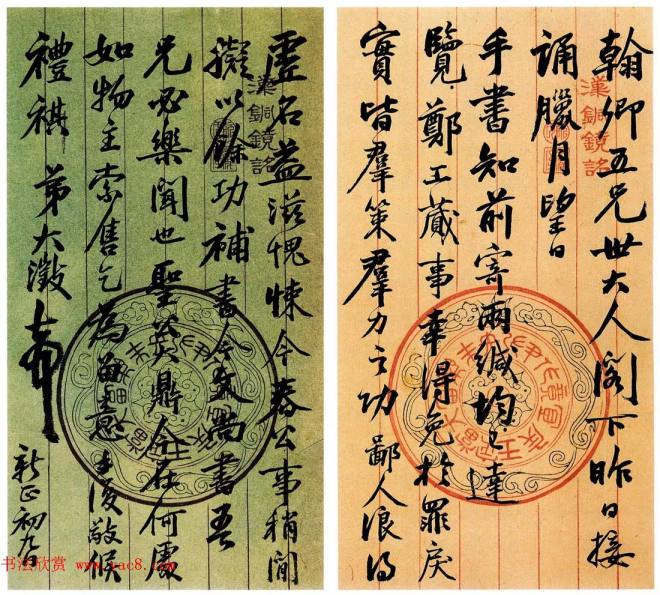 翰卿五兄世大人閣下昨日接
誦臘月望日
手書知前寄兩緘均已達
覽鄭工蕆事幸得免於罪戾
實皆羣策羣力之功鄙人浪得
虛名益滋愧悚今春公事稍閒
擬以餘功補書今文尚書吾
兄必樂聞也聖簋鼎今在何處
如物主索售乞為留意手復敬候
禮祺 弟大澂
新正初九日
漢銅鏡銘
漢銅鏡銘
书法欣赏 www.yac8.com